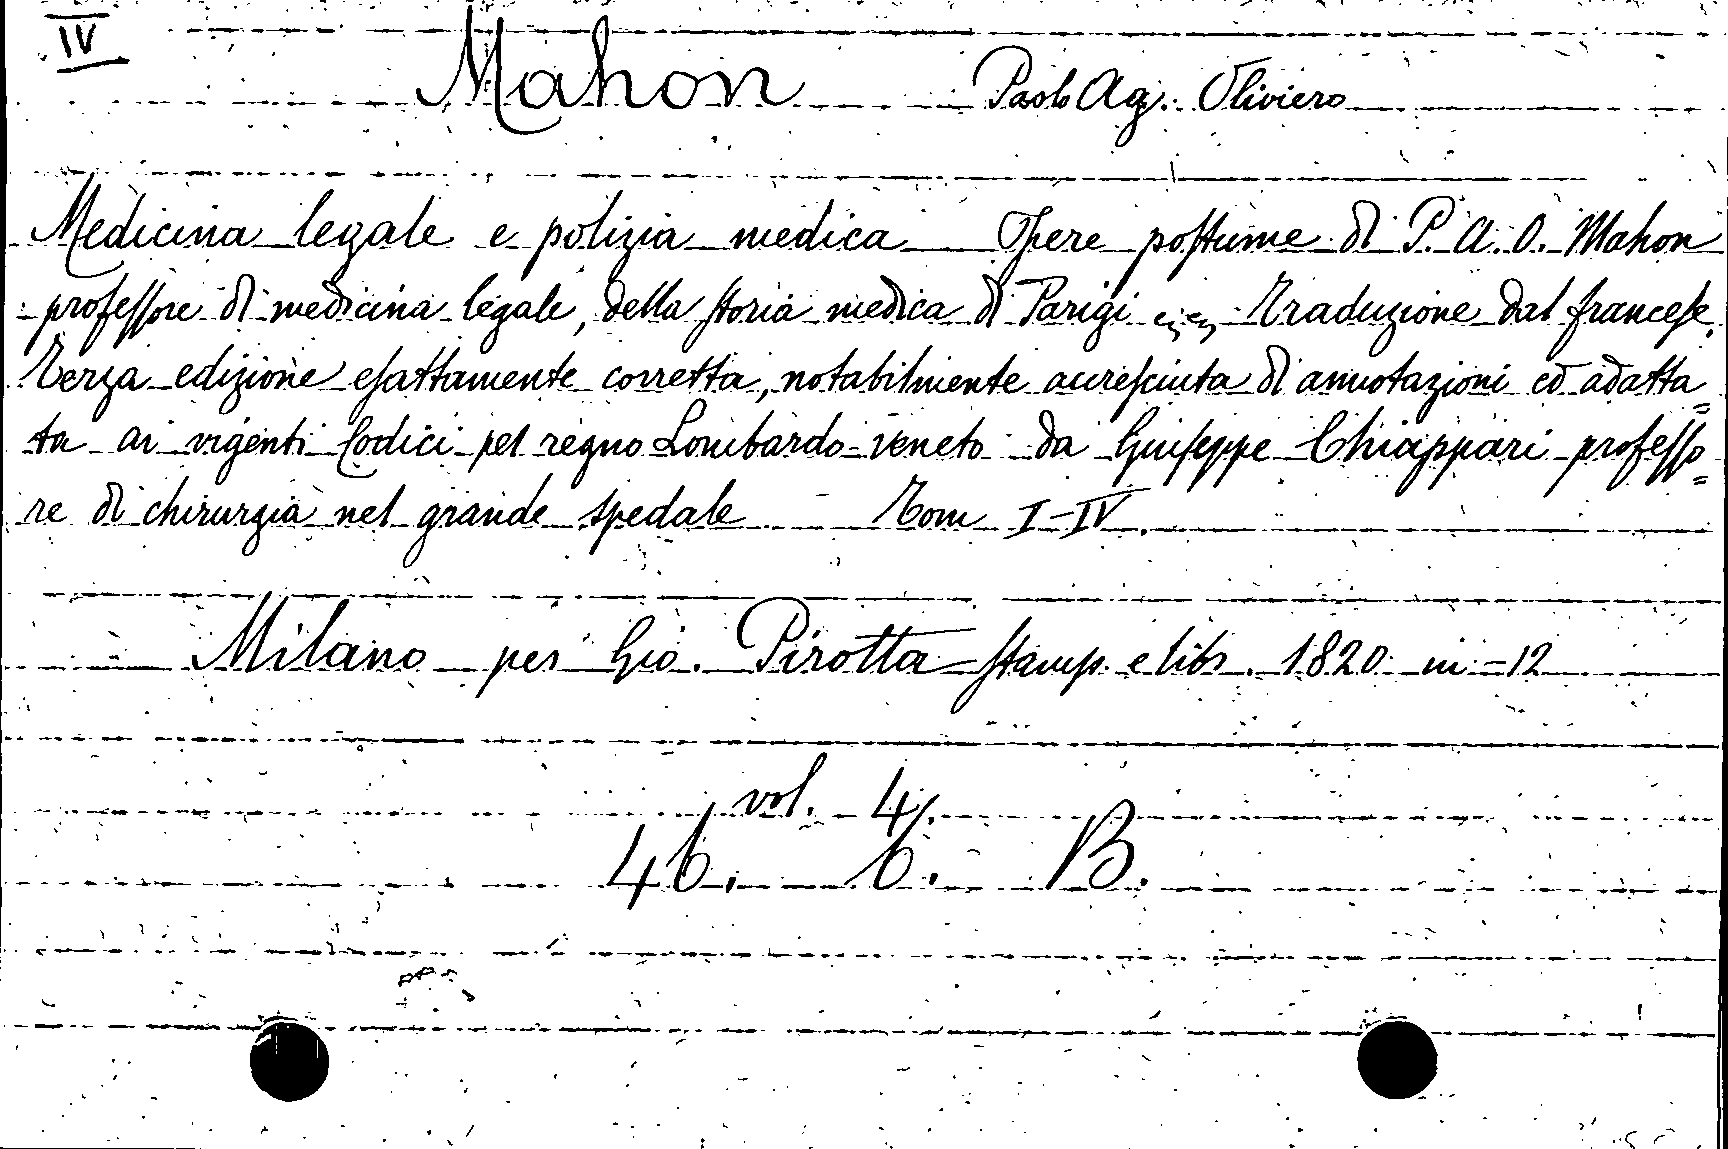 IV
Mahon Paolo Ag. Oliviero
Medicina legale e polizia medica Opere postume di P. A. O. Mahon
professore di medicina legale, della storia medica di Parigi Traduzione dal francese.
Terza edizione esattamente corretta, notabilmente accresciuta di annotazioni ed adatta=
ta ai vigenti Codici pel regno Lombardo-veneto da Giuseppe Chiappari professo=
re di chirurgia nel grande spedale Tom I-IV.
Milano per Gio. Pirotta stamp. e libr. 1820 in-12
vol. 4.
46. 6. B.